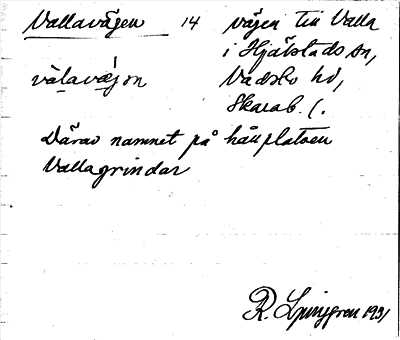 Vallavägen 14 vägen till Valla
i Hjälstads sn,
vàlavæ̀jən Vadsbo hd,
Skarab. l.
Därav namnet på hållplatsen
Vallagrindar
R. Ljunggren 1931